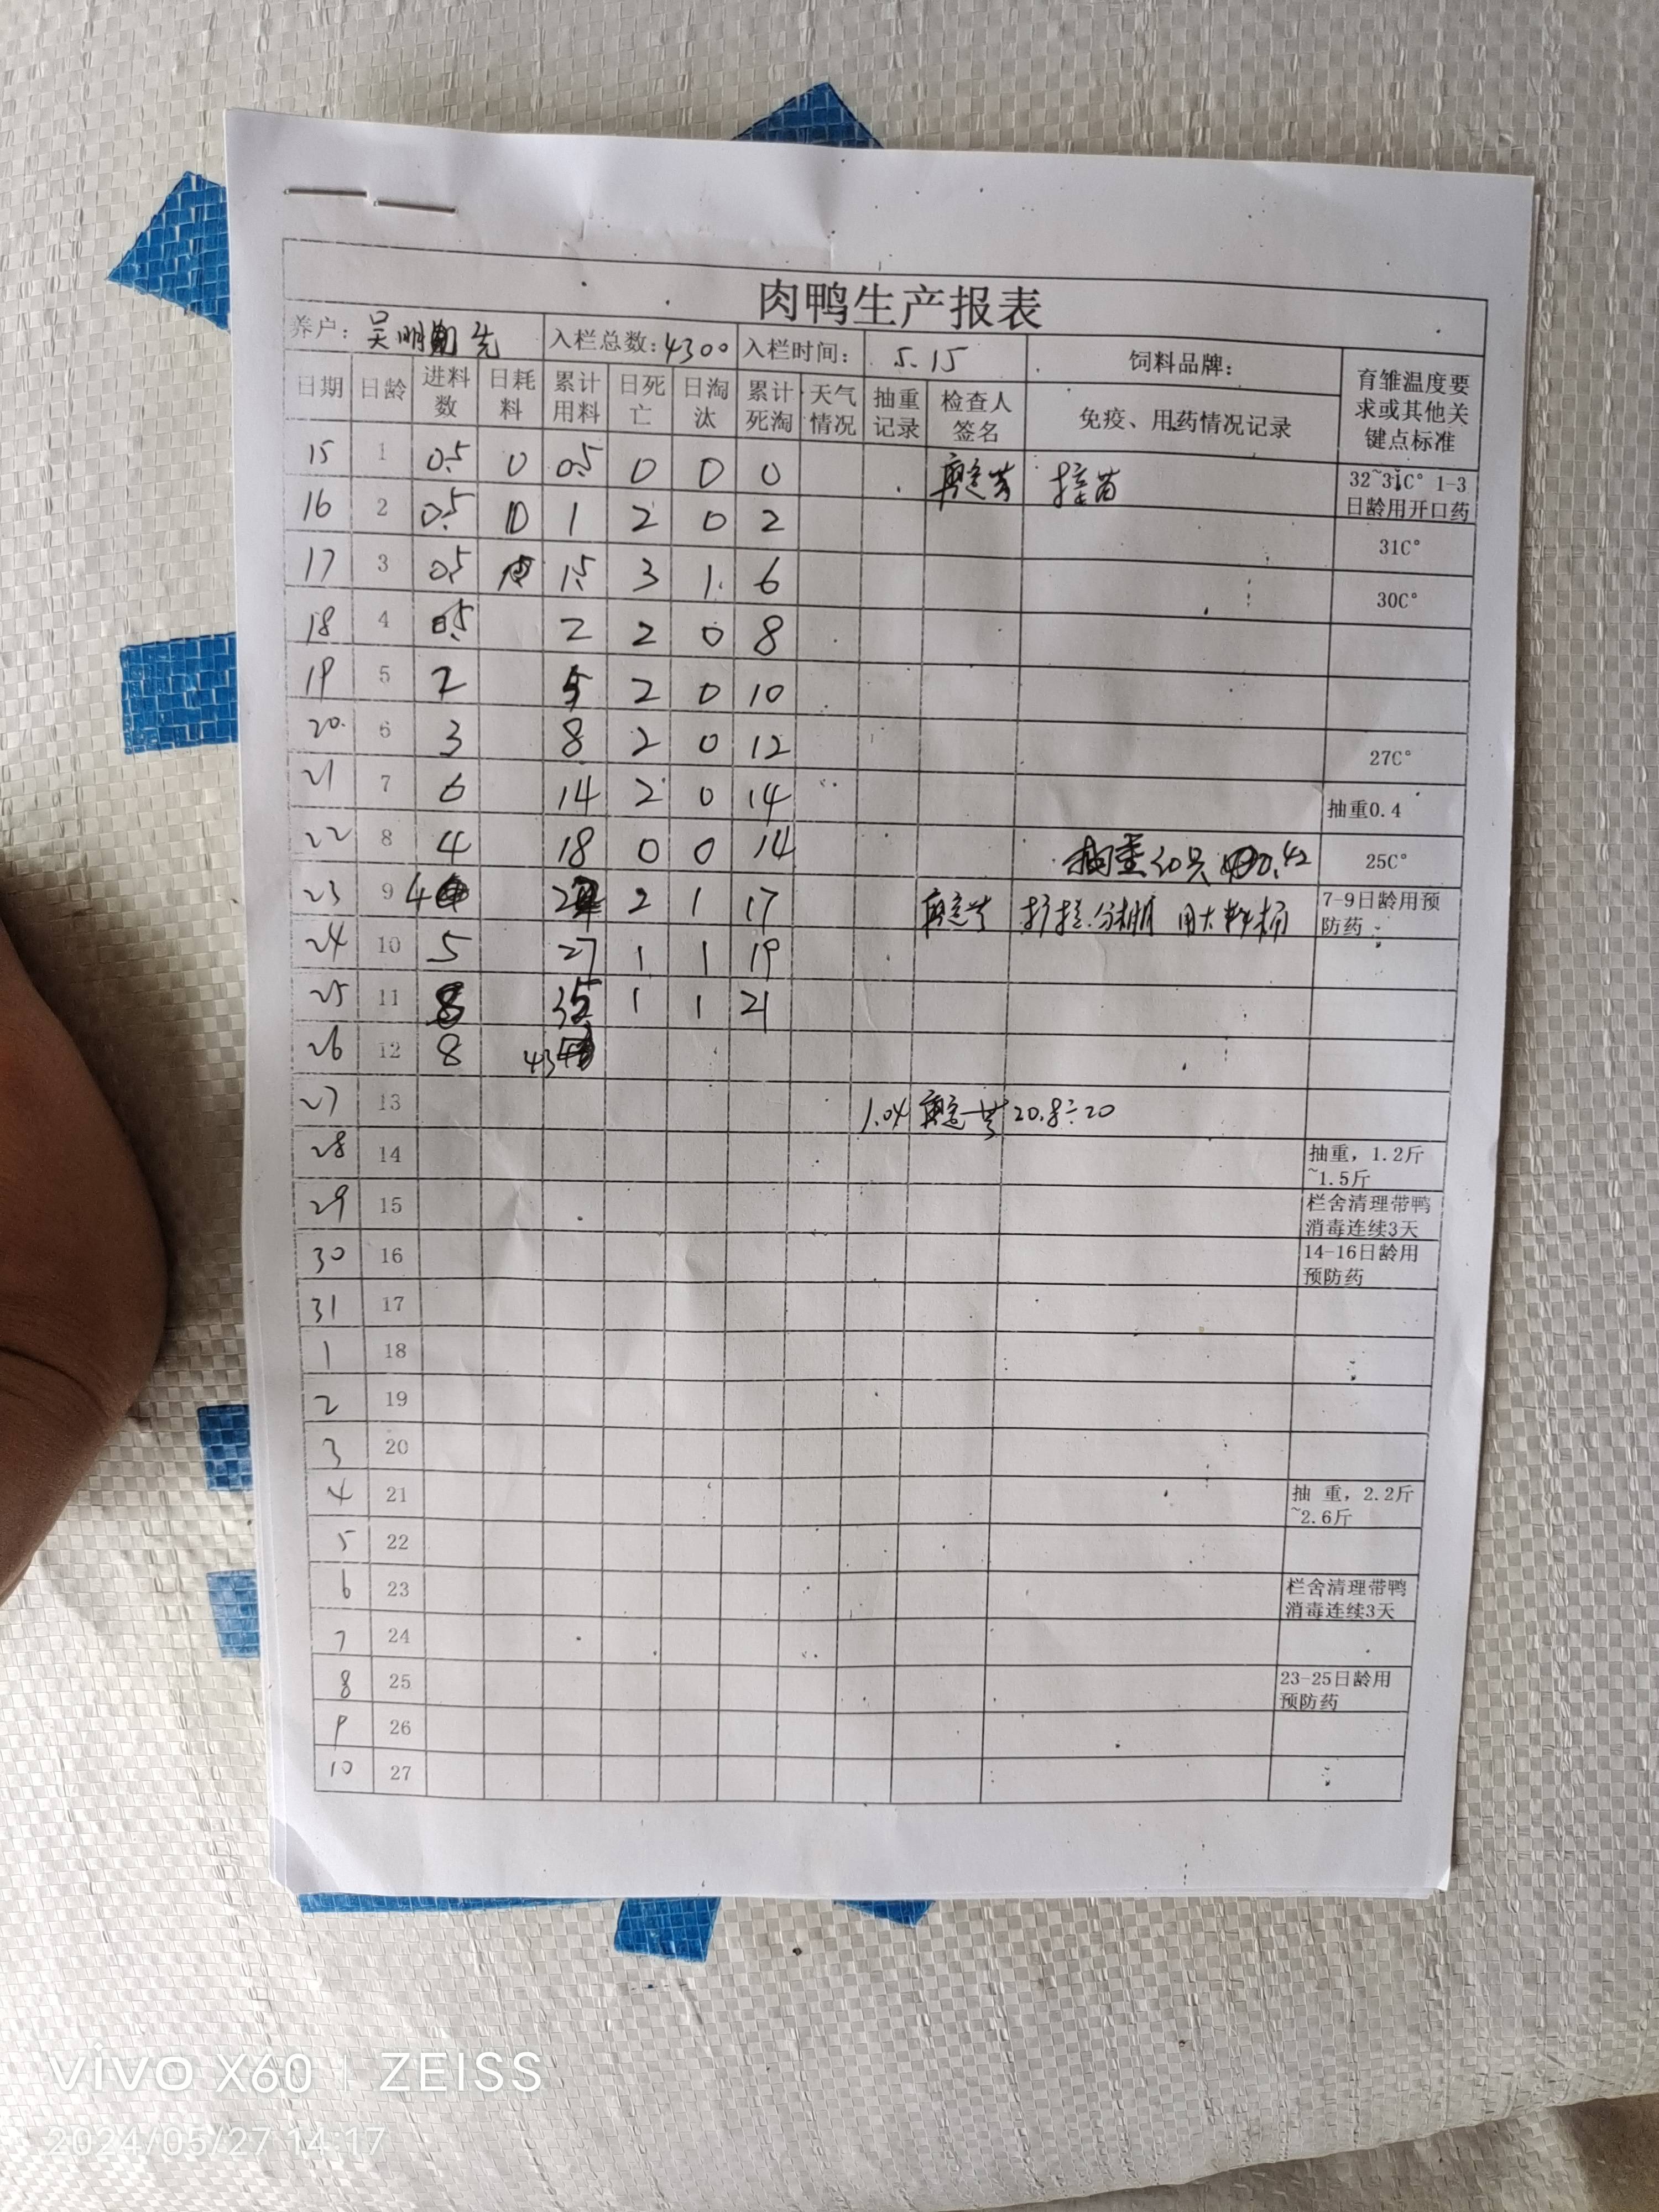 肉鸭生产报表
养户: 吴明 先 入栏总数: 4300 入栏时间: 5.15 饲料品牌: 育雏温度要求或其他关键点标准
日期 日龄 进料数 日耗料 累计用料 日死亡 日淘汰 累计死淘 天气情况 抽重记录 检查人签名 免疫、用药情况记录
15 1 0.5 0 0.5 0 0 0 接苗 32~31C° 1-3日龄用开口药
16 2 0.5 0 1 2 0 2 31C°
17 3 0.5 1.5 3 1 6 30C°
18 4 0.5 2 2 0 8
19 5 2 5 2 0 10
20 6 3 8 2 0 12 27C°
21 7 6 14 2 0 14 抽重0.4
22 8 4 18 0 0 14 抽重 20只 0.42 25C°
23 9 4 22 2 1 17 扩栏.分棚 用大料桶 7-9日龄用预防药
24 10 5 27 1 1 19
25 11 8 35 1 1 21
26 12 8 43
27 13 1.04 20.8÷20
28 14 抽重, 1.2斤~1.5斤
29 15 栏舍清理带鸭消毒连续3天
30 16 14-16日龄用预防药
31 17
1 18
2 19
3 20
4 21 抽 重, 2.2斤~2.6斤
5 22
6 23 栏舍清理带鸭消毒连续3天
7 24
8 25 23-25日龄用预防药
9 26
10 27
vivo X60 | ZEISS
2024/05/27 14:17